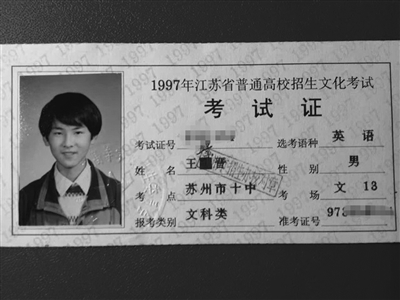 1997年江苏省普通高校招生文化考试
考试证
考试证号 选考语种 英语
姓名 王 晋 性别 男
考点 苏州市十中 考场 文13
报考类别 文科类 准考证号 973